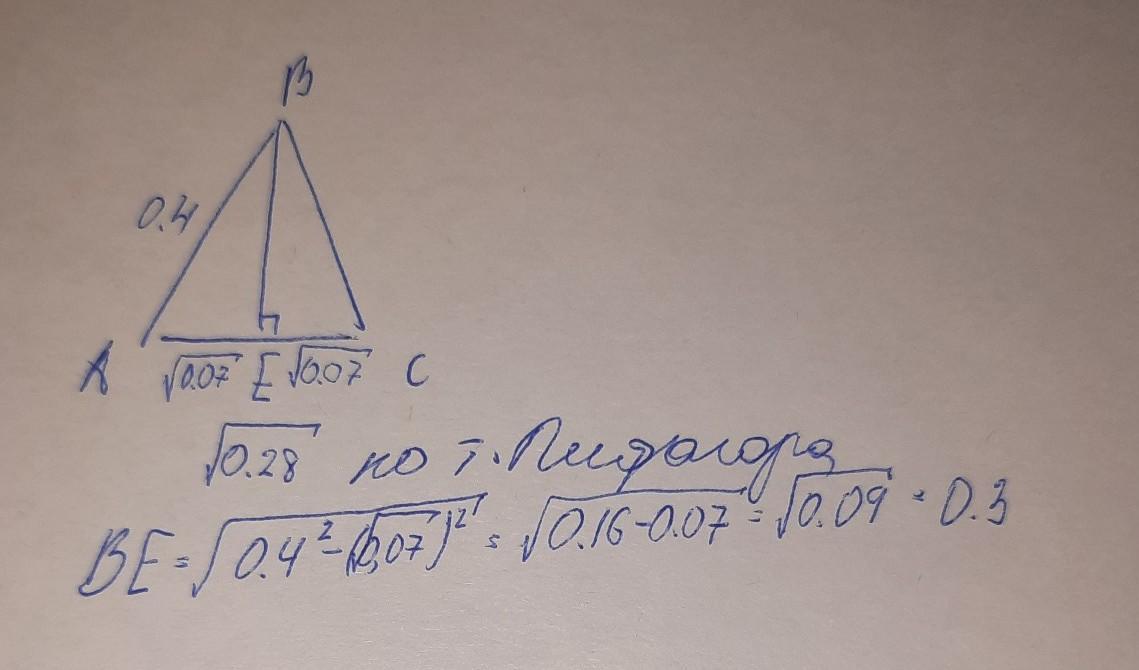 B
0.4
A √0.07 E √0.07 C
√0.28 по т. Пифагора
BE = √(0.4² - (√0,07)²) = √(0.16 - 0.07) = √0.09 = 0.3